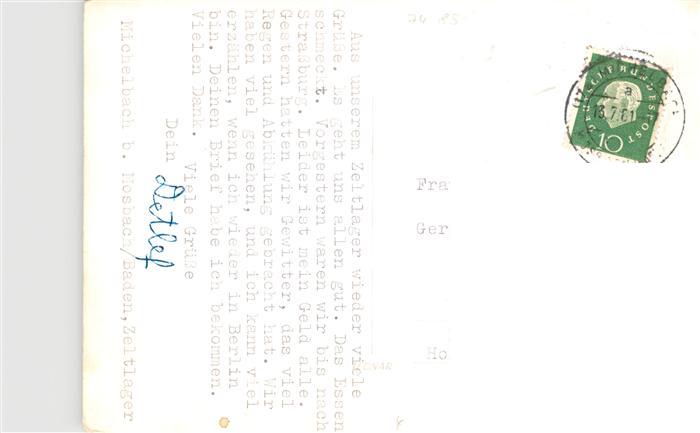 Aus unserem Zeltlager wieder viele
Grüße. Es geht uns allen gut. Das Essen
schmeckt. Vorgestern waren wir bis nach
Straßburg. Leider ist mein Geld alle.
Gestern hatten wir Gewitter, das viel
Regen und Abkühlung gebracht hat. Wir
haben viel gesehen, und ich kann viel
erzählen, wenn ich wieder in Berlin
bin. Deinen Brief habe ich bekommen.
Vielen Dank.
Viele Grüße
Dein
Detlef
Michelbach b. Mosbach/Baden, Zeltlager
Fra
Ger
Ho
DEUTSCHE BUNDESPOST
10
a